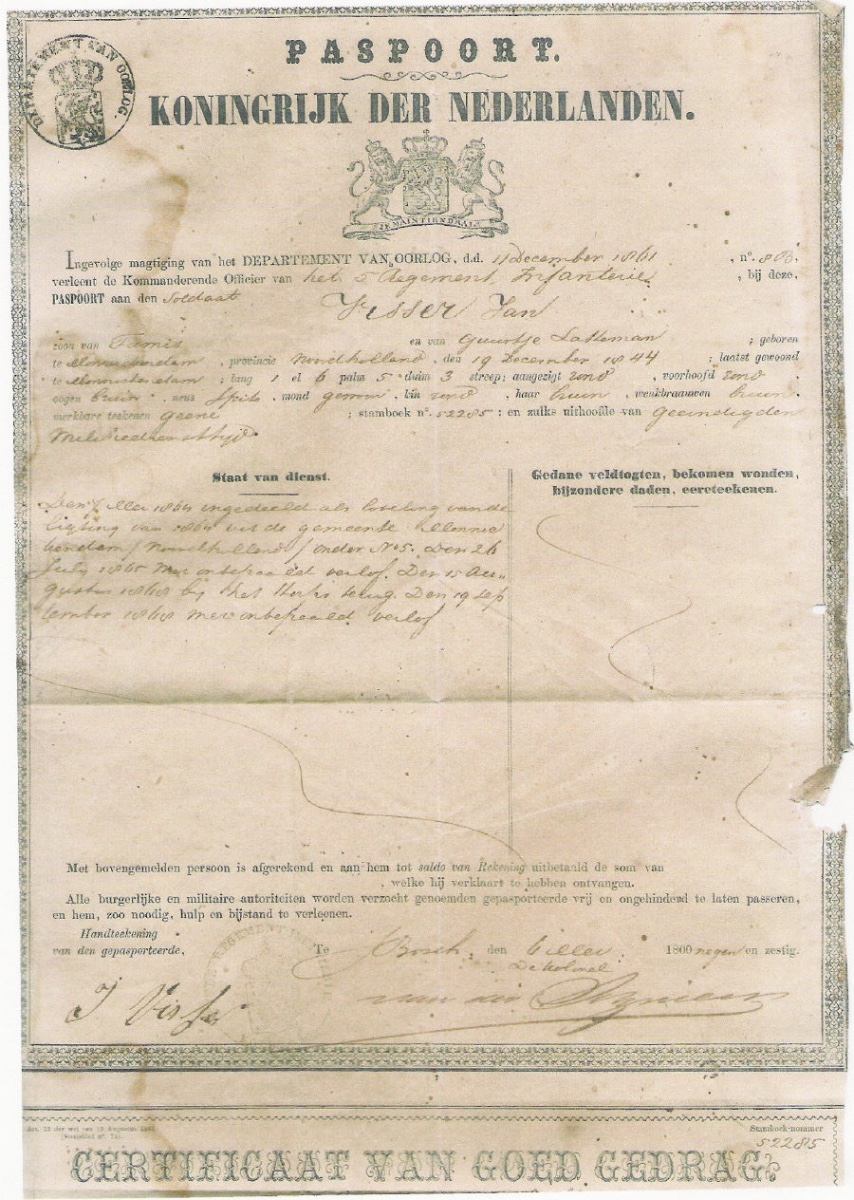 DEPARTEMENT VAN OORLOG.
PASPOORT.
KONINGRIJK DER NEDERLANDEN.
JE MAINTIENDRAI
Ingevolge magtiging van het DEPARTEMENT VAN OORLOG, d.d. 11 December 1861, nº. 803,
verleent de Kommanderende Officier van het 5 Regement Infanterie, bij deze,
PASPOORT aan den Soldaat Visser Jan
zoon van en van Geertje ; geboren
te Monnickendam, provincie Noordholland, den 19 December 1844 ; laatst gewoond
te Monnickendam ; lang 1 el 6 palm 5 duim 3 streep; aangezigt rond, voorhoofd rond
oogen bruin, neus spits, mond gewoon, kin rond, haar bruin, wenkbraauwen bruin,
merkbare teekenen geene ; stamboek nº. 52285 ; en zulks uithoofde van Geeindigden
diensttijd.
Staat van dienst.
Gedane veldtogten, bekomen wonden,
bijzondere daden, eereteekenen.
Den Mei 1864 ingedeeld als loteling van de
ligting van 1864 uit de gemeente Monnic
kendam / Noordholland / onder No 5. Den 26
July 1865 met onbepaald verlof. Den 15 Au-
gustus 1868 bij het Korps terug. Den 19 Sep
tember 1868 met onbepaald verlof
Met bovengemelden persoon is afgerekend en aan hem tot saldo van Rekening uitbetaald de som van
, welke hij verklaart te hebben ontvangen.
Alle burgerlijke en militaire autoriteiten worden verzocht genoemden gepasporteerde vrij en ongehinderd te laten passeren,
en hem, zoo noodig, hulp en bijstand te verleenen.
Handteekening
van den gepasporteerde,
Te Bosch, den Mei 1800 negen en zestig.
De Kolonel
J Visser
van der
REGEMENT INFANTERIE
Stamboek-nommer
52285
CERTIFICAAT VAN GOED GEDRAG.